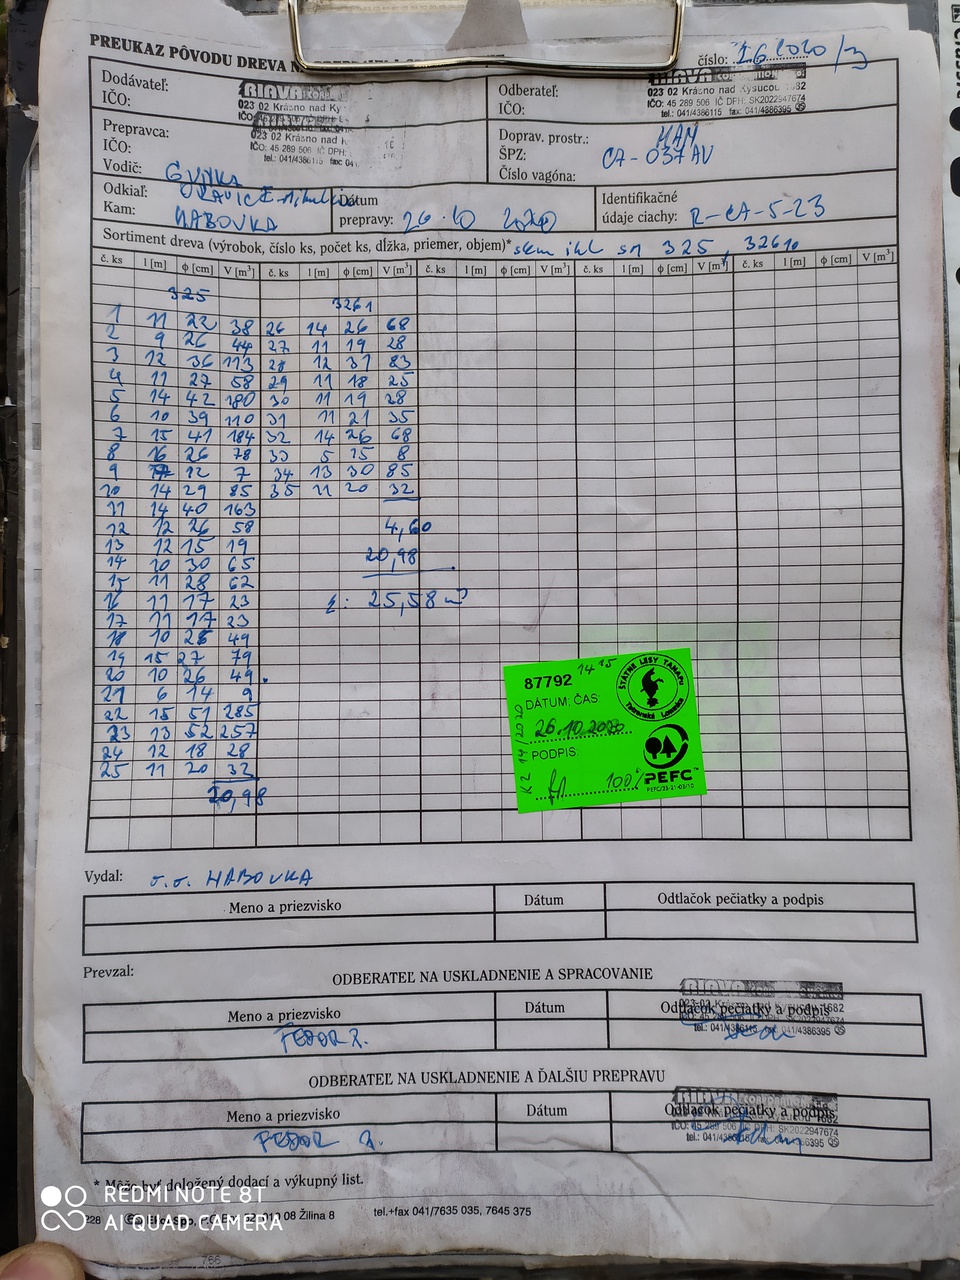 PREUKAZ PÔVODU DREVA
číslo: 16 2020/3
Dodávateľ: RIAVA
IČO: 023 02 Krásno nad Ky
Odberateľ: RIAVA CORPORATION
023 02 Krásno nad Kysucou 1682
IČO: IČO: 45 289 506 IČ DPH: SK2022947674
tel.: 041/4386115 fax: 041/4386395
Prepravca:
023 02 Krásno nad K
IČO: IČO: 45 289 506 IČ DPH:
tel.: 041/4386115 fax: 041
Vodič:
Doprav. prostr.: MAN
ŠPZ: CA-037AV
Číslo vagóna:
Odkiaľ: ORAVICE
Kam: HABOVKA
Dátum
prepravy: 26.10 2020
Identifikačné
údaje ciachy: R-CA-5-23
Sortiment dreva (výrobok, číslo ks, počet ks, dĺžka, priemer, objem)* sm 325,
č. ks l [m] φ [cm] V [m³] č. ks l [m] φ [cm] V [m³] č. ks l [m] φ [cm] V [m³] č. ks l [m] φ [cm] V [m³] č. ks l [m] φ [cm] V [m³]
325 3261
1 11 22 38 26 14 26 68
2 9 26 44 27 11 19 28
3 12 36 113 28 12 31 83
4 11 27 58 29 11 18 25
5 14 42 180 30 11 19 28
6 10 39 110 31 11 21 35
7 15 41 184 32 14 26 68
8 16 26 78 33 5 15 8
9 12 7 34 13 30 85
10 14 29 85 35 11 20 32
11 14 40 163
12 12 26 58 4,60
13 12 15 19 20,98
14 10 30 65
15 11 28 62
16 11 17 23 25,58 m³
17 11 17 23
18 10 26 49
19 15 27 79
20 10 26 49
21 6 14 9
22 15 51 285
23 13 52 257
24 12 18 28
25 11 20 32
20,98
87792 14 15
DÁTUM; ČAS:
26.10.2020
PODPIS:
100%
KZ 14/2020
ŠTÁTNE LESY TANAPu
Tatranská Lomnica
PEFC
PEFC/23-21-03/10
Vydal: HABOVKA
Meno a priezvisko Dátum Odtlačok pečiatky a podpis
Prevzal:
ODBERATEĽ NA USKLADNENIE A SPRACOVANIE
RIAVA CORPORATION
Meno a priezvisko Dátum Odtlačok pečiatky a podpis
023 02 Krásno nad Kysucou 1682
IČO: 45 289 506 IČ DPH: SK2022947674
tel.: 041/4386115 fax: 041/4386395
FEDOR
ODBERATEĽ NA USKLADNENIE A ĎALŠIU PREPRAVU
RIAVA CORPORATION
Meno a priezvisko Dátum Odtlačok pečiatky a podpis
tel.: 041/4386115
FEDOR
* Môže byť doložený dodací a výkupný list.
08 Žilina 8 tel.+fax 041/7635 035, 7645 375
REDMI NOTE 8T
AI QUAD CAMERA